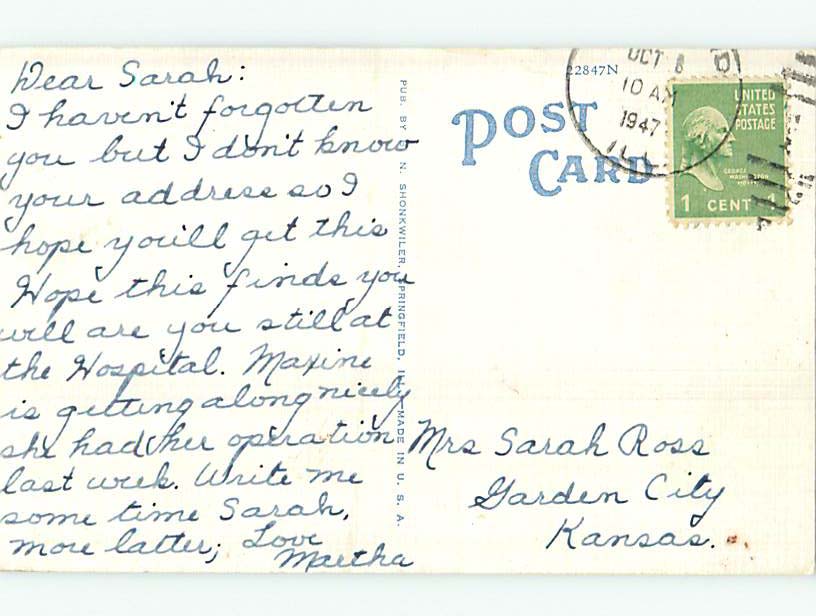 Dear Sarah:
I haven't forgotten
you but I don't know
your address so I
hope you'll get this
Hope this finds you
well are you still at
the Hospital. Maxine
is getting along nicely
she had her operation
last week. Write me
some time Sarah,
more latter; Love
Martha
PUB. BY N. SHONKWILER, SPRINGFIELD, ILL. MADE IN U. S. A.
22847N
POST
CARD
OCT 8
10 AM
1947
ILL.
UNITED
STATES
POSTAGE
GEORGE
WASHINGTON
1 CENT 1
Mrs Sarah Ross
Garden City
Kansas.